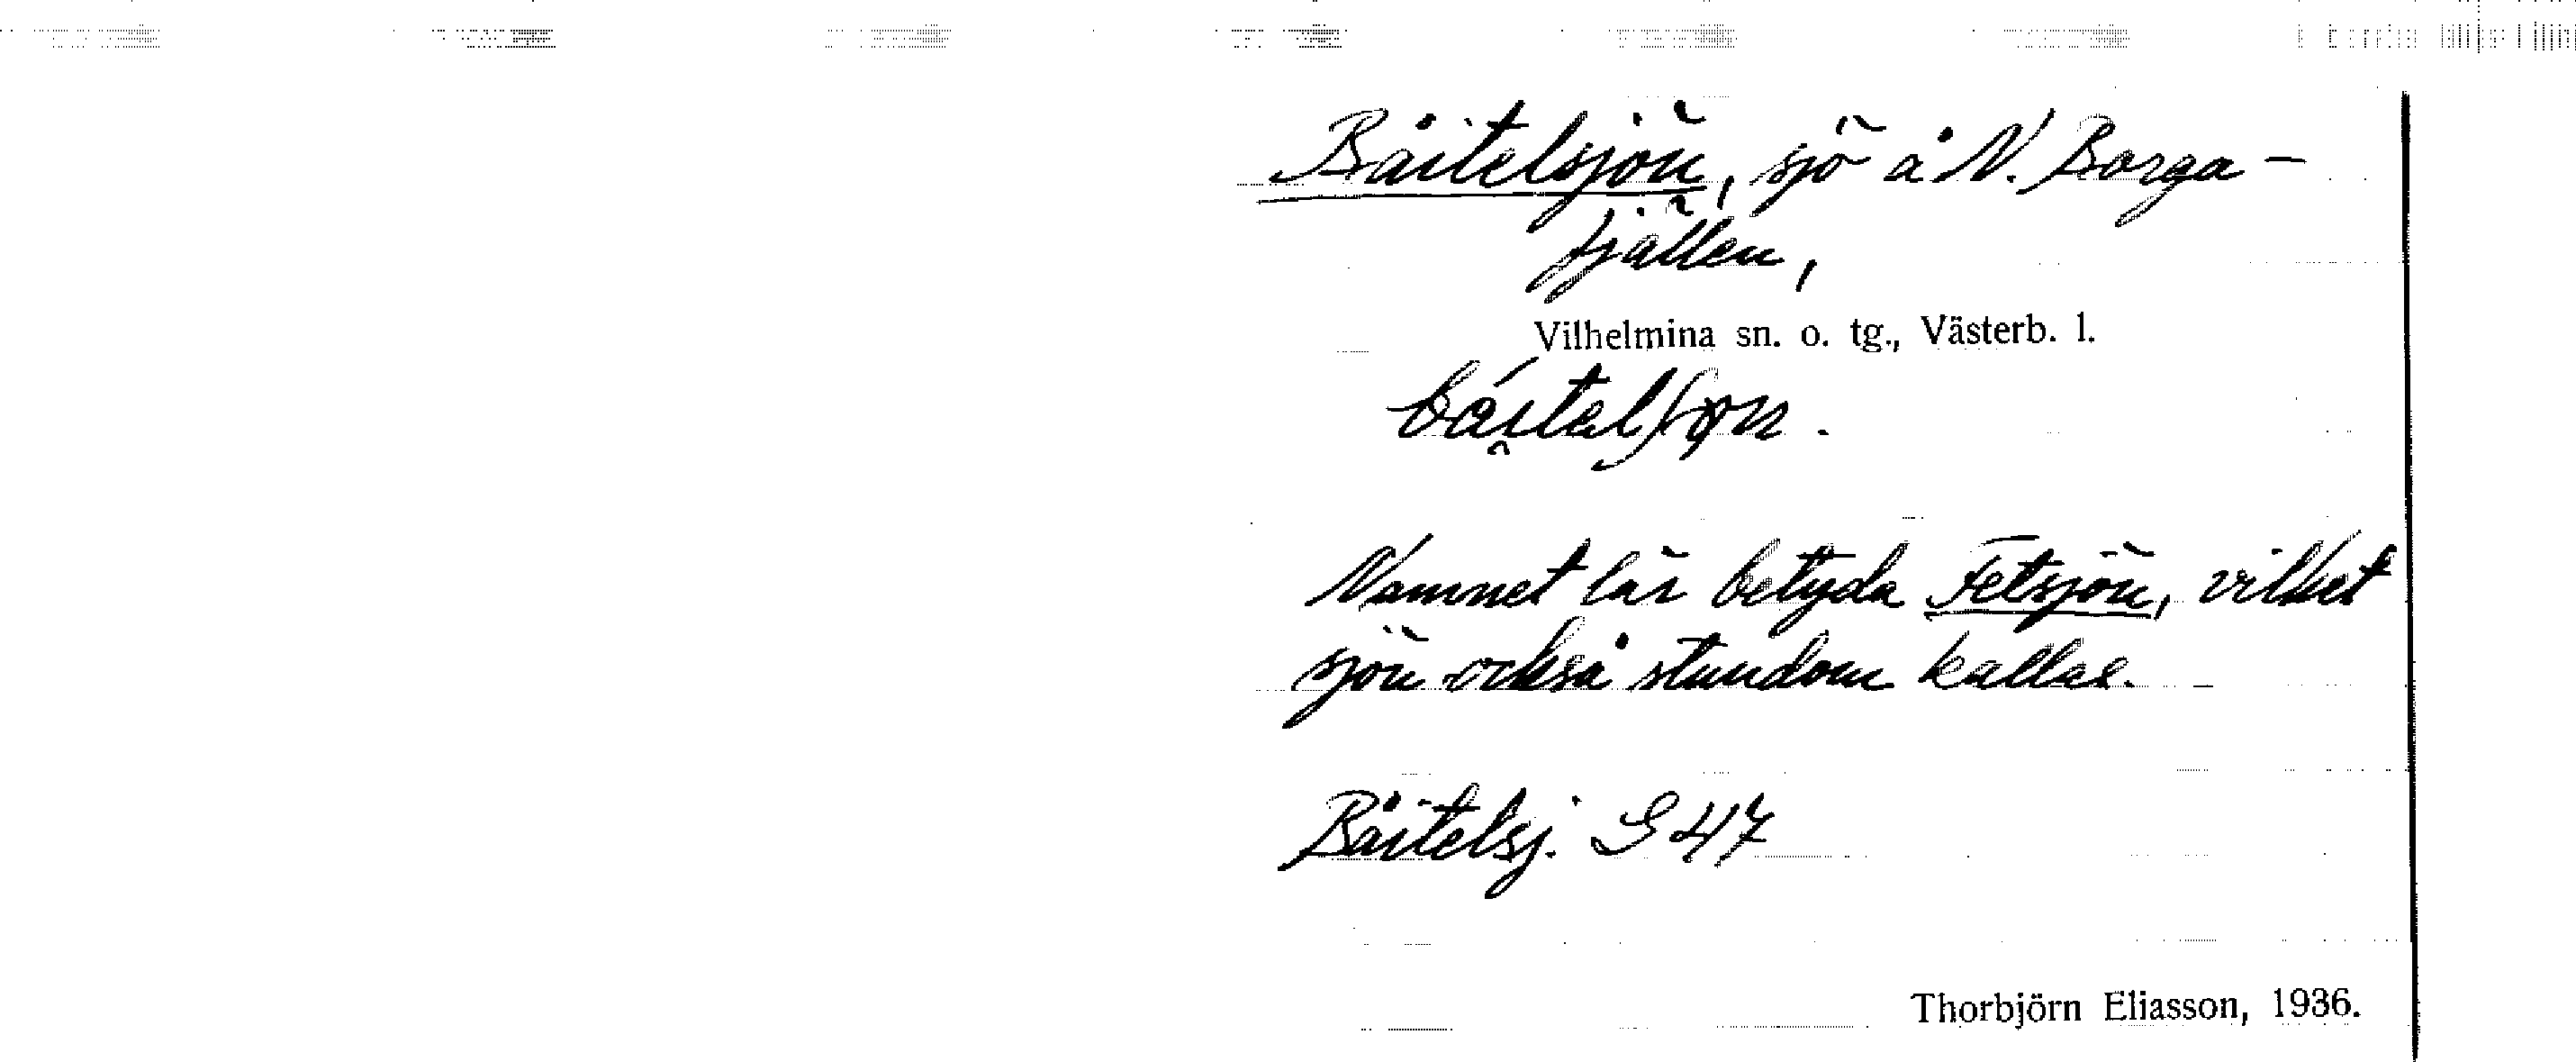 Båitelsjön, sjö å N. Borga-
fjällen,
Vilhelmina sn. o. tg., Västerb. l.
Namnet lär betyda Fetsjön, vilket
sjön också stundom kallas.
Båitelsj. S 47
Thorbjörn Eliasson, 1936.